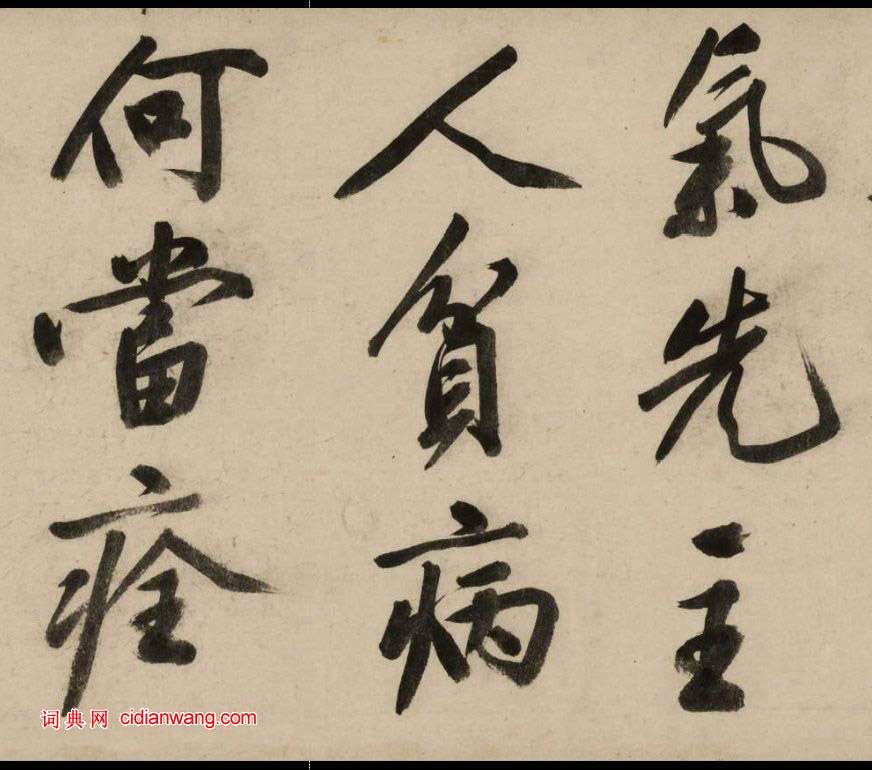 氣先主
人貧病
何當痊
词典网 cidianwang.com